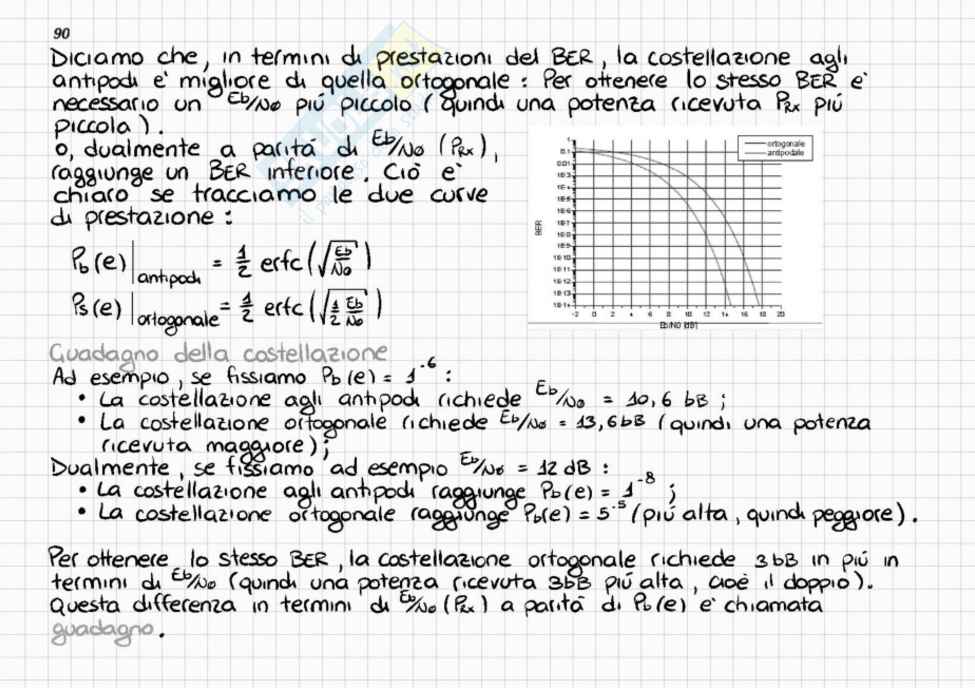 90
Diciamo che, in termini di prestazioni del BER, la costellazione agli
antipodi e' migliore di quella ortogonale : Per ottenere lo stesso BER e'
necessario un Eb/N0 più piccolo (quindi una potenza ricevuta PRx più
piccola).
o, dualmente a parità di Eb/N0 (PRx),
raggiunge un BER inferiore. Ciò e'
chiaro se tracciamo le due curve
di prestazione :
ortogonale
antipodale
BER
1
0.1
0.01
1E-3
1E-5
1E-6
1E-7
1E-8
1E-9
1E-10
1E-11
1E-12
1E-13
-2 0 2 4 6 8 10 12 14 16 18 20
Eb/N0 [dB]
Pb(e)|antipodi = 1/2 erfc(√(Eb/N0))
Ps(e)|ortogonale = 1/2 erfc(√(1/2 Eb/N0))
Guadagno della costellazione
Ad esempio, se fissiamo Pb(e) = 1^-6 :
• La costellazione agli antipodi richiede Eb/N0 = 10,6 bB ;
• La costellazione ortogonale richiede Eb/N0 = 13,6bB (quindi una potenza
ricevuta maggiore);
Dualmente, se fissiamo ad esempio Eb/N0 = 12 dB :
• La costellazione agli antipodi raggiunge Pb(e) = 1^-8 ;
• La costellazione ortogonale raggiunge Pb(e) = 5^-5 (più alta, quindi peggiore).
Per ottenere lo stesso BER, la costellazione ortogonale richiede 3bB in più in
termini di Eb/N0 (quindi una potenza ricevuta 3bB più alta, cioè il doppio).
Questa differenza in termini di Eb/N0 (PRx) a parità di Pb(e) e' chiamata
guadagno.